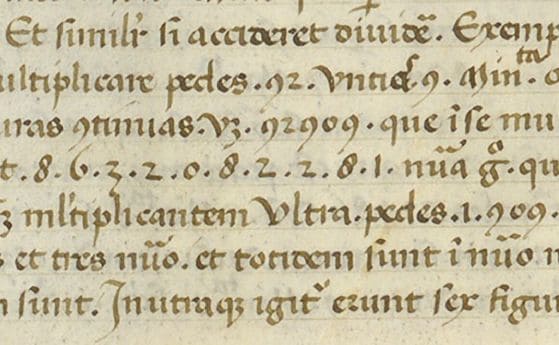 Et similr̃ si accideret diuidẽ. Exemp
ultiplicare pedes .92. vntie .9. Min.ta
uras 9tinuas. vꝫ. 92909. que ĩ se mu
t. 8. 6. 3. 2. 0. 8. 2. 2. 8. 1. nũa g̊. qu
ꝫ ml'tiplicantem vltra. pedes .1. 909
s et tres nũo. et totidem sunt ĩ nũo n
n sunt. In utraqꝫ igit' erunt sex figur